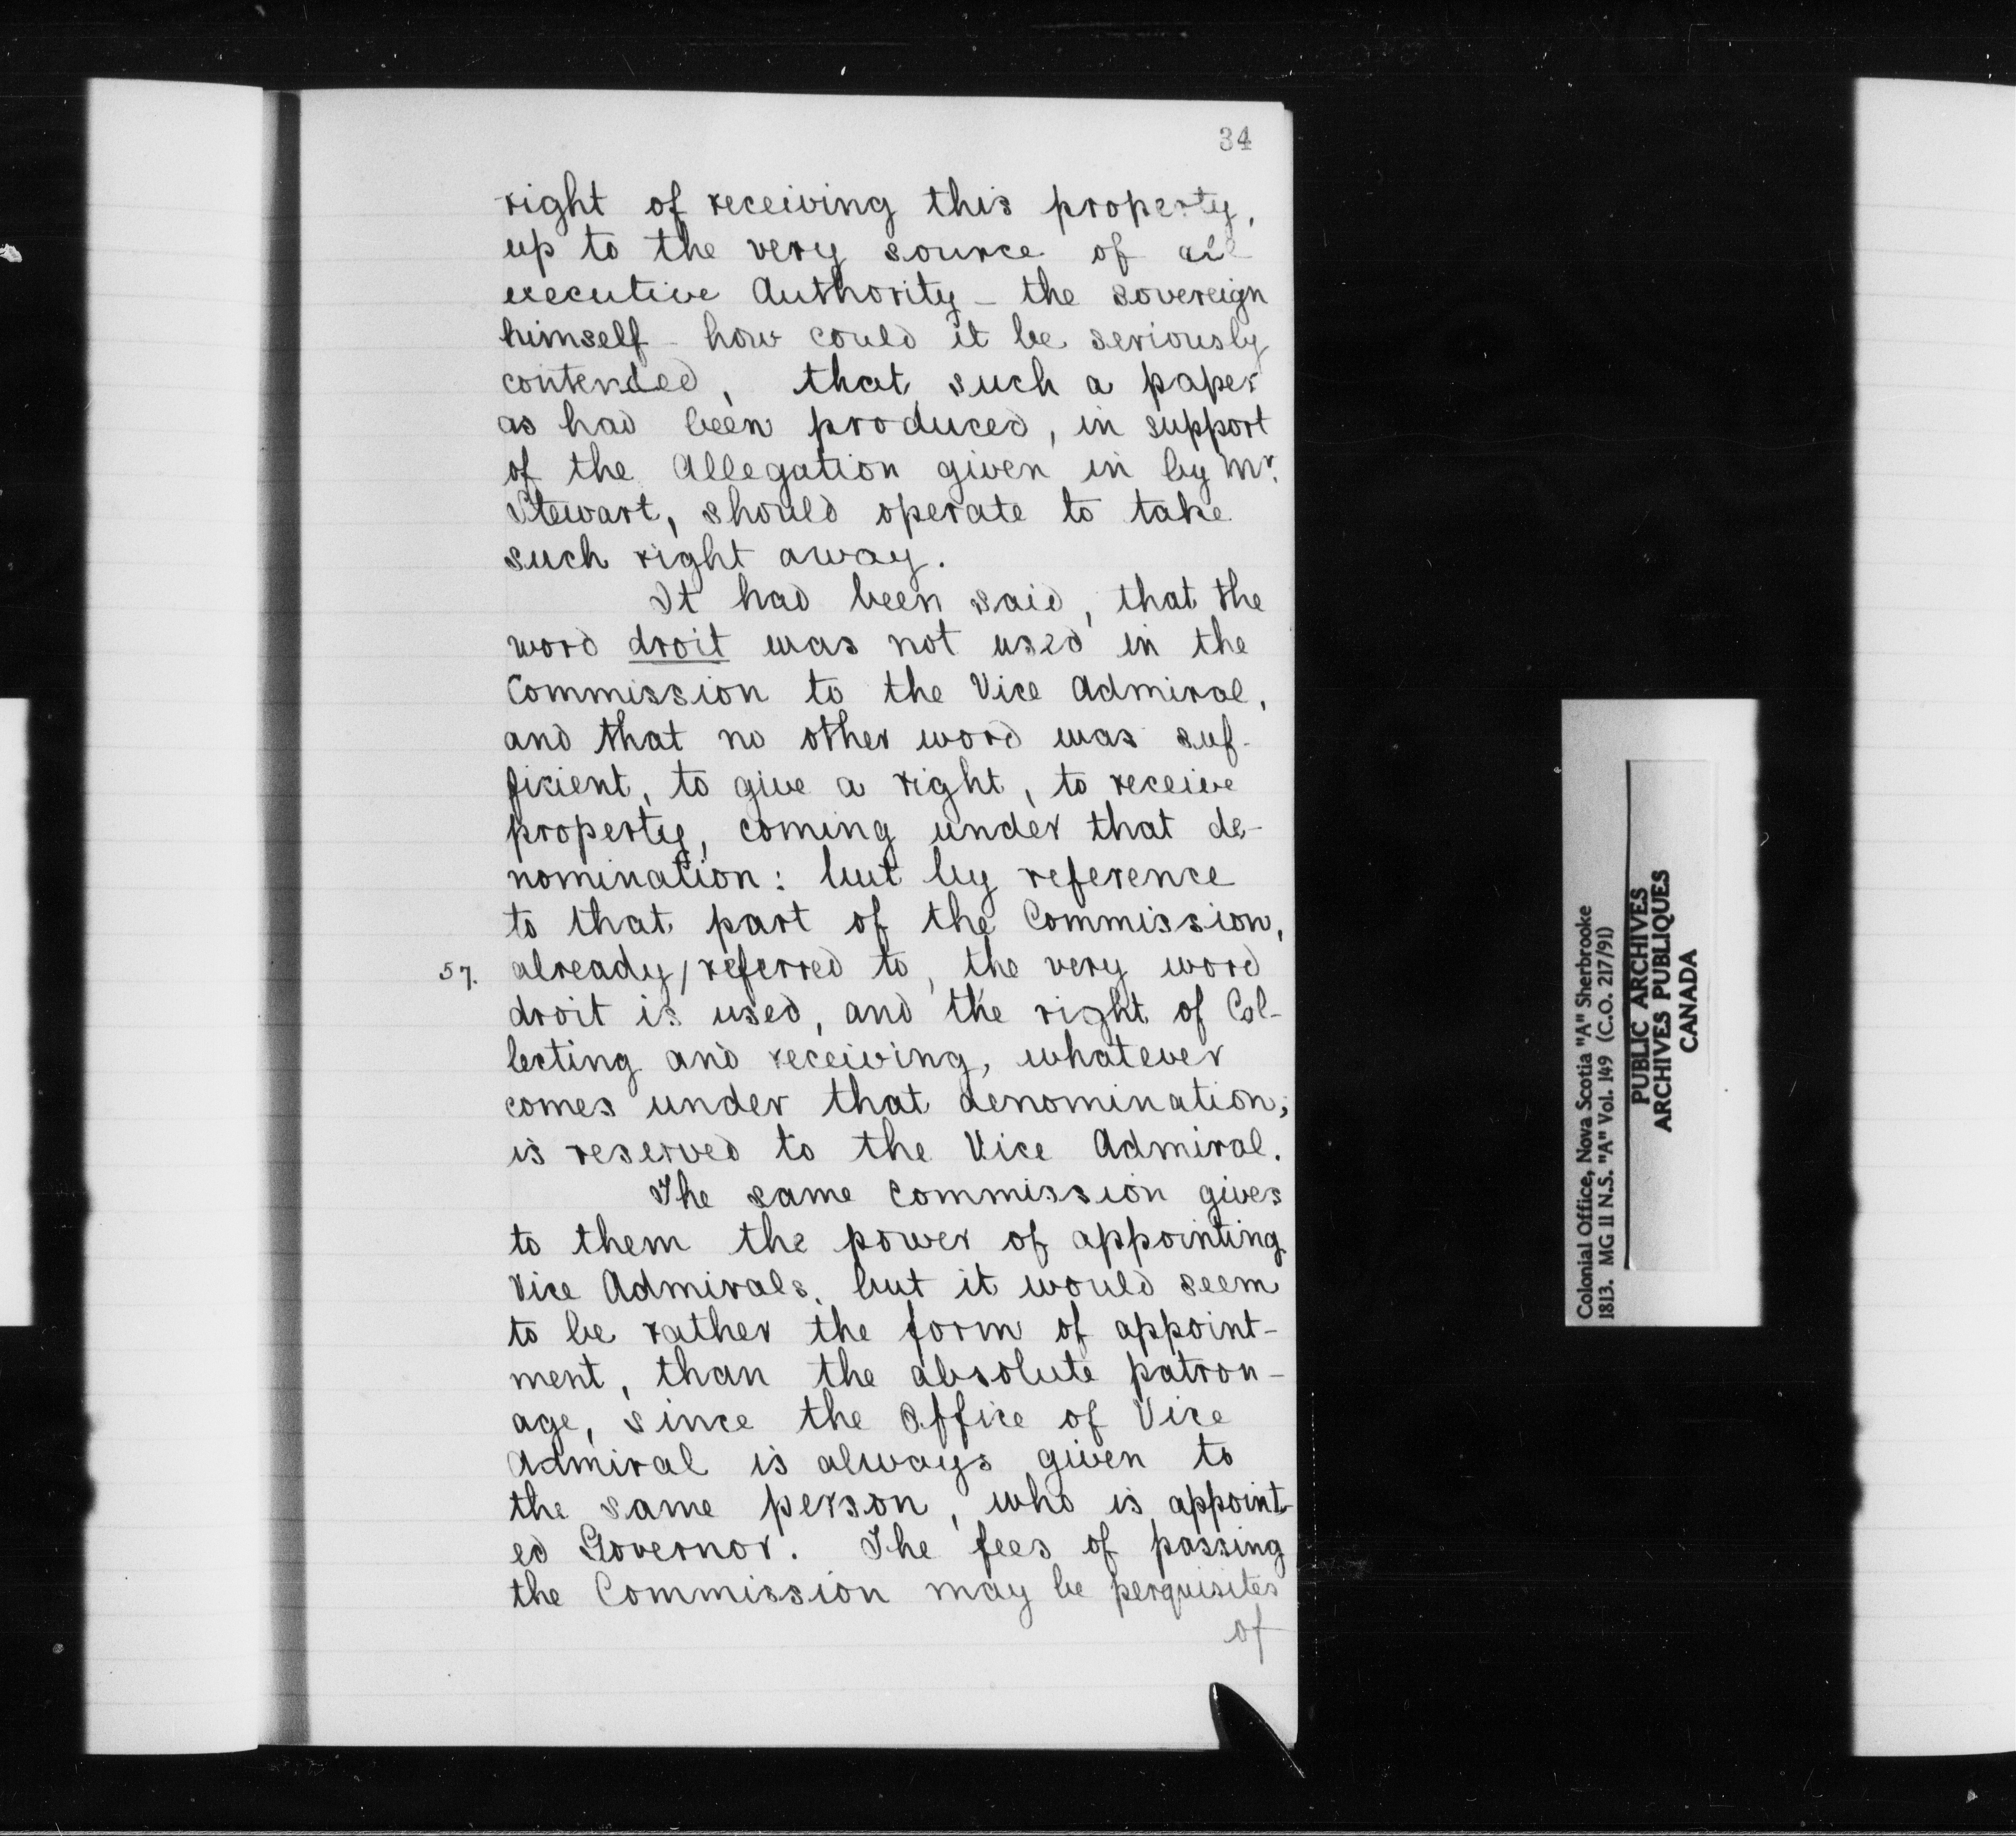 34
right of receiving this property,
up to the very source of all
executive Authority - the sovereign
himself - how could it be seriously
contended, that such a paper
as had been produced, in support
of the Allegation given in by Mr.
Stewart, should operate to take
such right away.
It had been said, that the
word droit was not used in the
Commission to the Vice Admiral,
and that no other word was suf-
ficient, to give a right, to receive
property, coming under that de-
nomination: but by reference
to that part of the Commission,
57. already / referred to, the very word
droit is used, and the right of Col-
lecting and receiving, whatever
comes under that denomination,
is reserved to the Vice Admiral.
The same Commission gives
to them the power of appointing
Vice Admirals, but it would seem
to be rather the form of appoint-
ment, than the absolute patron-
age, since the Office of Vice
Admiral is always given to
the same person, who is appoint-
ed Governor. The fees of passing
the Commission may be perquisites
of
Colonial Office, Nova Scotia "A" Sherbrooke
1813. MG 11 N.S. "A" Vol. 149 (C.O. 217/91)
PUBLIC ARCHIVES
ARCHIVES PUBLIQUES
CANADA